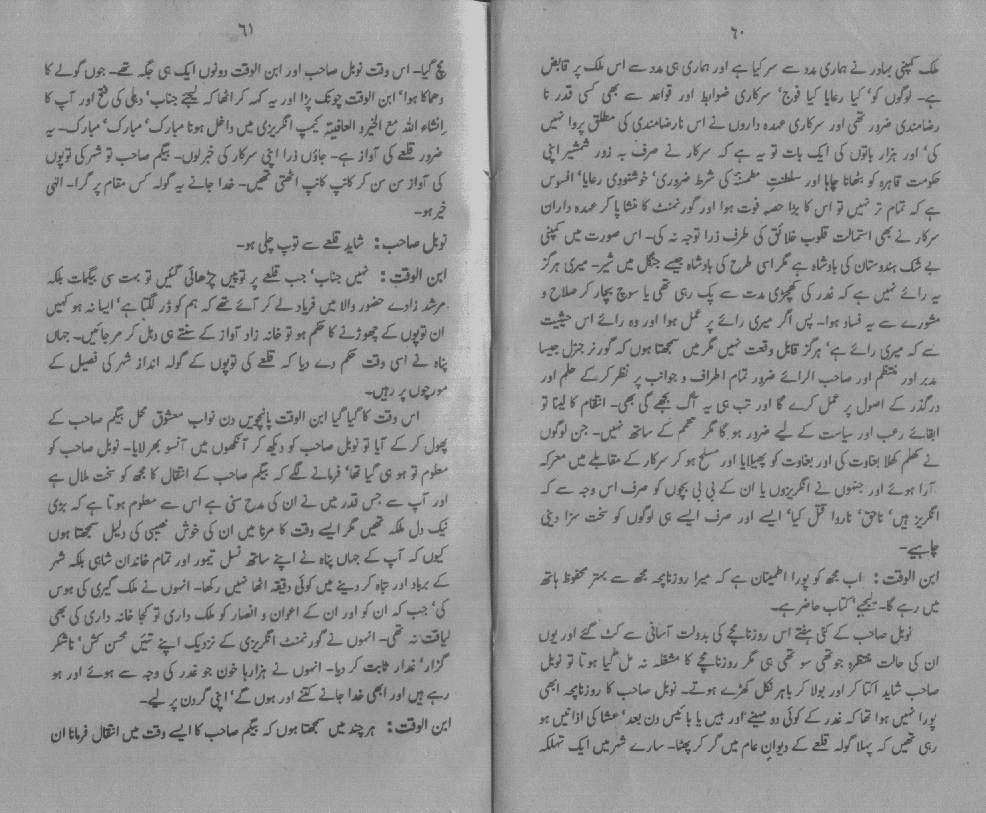 ٦٠
ملک کمپنی بہادر نے ہماری مدد سے سر کیا ہے اور ہماری ہی مدد سے اس ملک پر قابض
ہے۔ لوگوں کو' کیا رعایا کیا فوج' سرکاری ضوابط اور قواعد سے بھی کسی قدر نا
رضامندی ضرور تھی اور سرکاری عہدہ داروں نے اس نارضامندی کی مطلق پروا نہیں
کی' اور ہزار باتوں کی ایک بات تو یہ ہے کہ سرکار نے صرف بہ زور شمشیر اپنی
حکومت قاہرہ کو بٹھانا چاہا اور سلطنتِ مطمئنہ کی شرط ضروری' خوشنودی رعایا' افسوس
ہے کہ تمام تر نہیں تو اس کا بڑا حصہ فوت ہوا اور گورنمنٹ کا منشا پا کر عہدہ داران
سرکار نے بھی استمالت قلوب خلائق کی طرف ذرا توجہ نہ کی۔ اس صورت میں کمپنی
بے شک ہندوستان کی بادشاہ ہے مگر اسی طرح کی بادشاہ جیسے جنگل میں شیر۔ میری ہرگز
یہ رائے نہیں ہے کہ غدر کی کھچڑی مدت سے پک رہی تھی یا سوچ بچار کر صلاح و
مشورے سے یہ فساد ہوا۔ پس اگر میری رائے پر عمل ہوا اور وہ رائے اس حیثیت
سے کہ میری رائے ہے' ہرگز قابل وقعت نہیں مگر میں سمجھتا ہوں کہ گورنر جنرل جیسا
مدبر اور منتظم اور صاحب الرائے ضرور تمام اطراف و جوانب پر نظر کر کے حلم اور
درگذر کے اصول پر عمل کرے گا اور تب ہی یہ آگ بجھے گی بھی۔ انتقام کا لینا تو
ابقائے رعب اور سیاست کے لیے ضرور ہو گا مگر تعمم کے ساتھ نہیں۔ جن لوگوں
نے کھلم کھلا بغاوت کی اور بغاوت کو پھیلایا اور مسلح ہو کر سرکار کے مقابلے میں معرکہ
آرا ہوئے اور جنہوں نے انگریزوں یا ان کے بی بی بچوں کو صرف اس وجہ سے کہ
انگریز ہیں' ناحق' ناروا قتل کیا' ایسے اور صرف ایسے ہی لوگوں کو سخت سزا دینی
چاہیے۔
ابن الوقت: اب مجھ کو پورا اطمینان ہے کہ میرا روزنامچہ مجھ سے بہتر محفوظ ہاتھ
میں رہے گا۔ لیجئے' کتاب حاضر ہے۔
نوبل صاحب کے کئی ہفتے اس روزنامچے کی بدولت آسانی سے کٹ گئے اور یوں
ان کی حالت منتظرہ جو تھی سو تھی ہی مگر روزنامچے کا مشغلہ نہ مل گیا ہوتا تو نوبل
صاحب شاید اکتا کر اور بولا کر باہر نکل کھڑے ہوتے۔ نوبل صاحب کا روزنامچہ ابھی
پورا نہیں ہوا تھا کہ غدر کے کوئی دو مہینے اور بیس یا بائیس دن بعد' عشا کی اذانیں ہو
رہی تھیں کہ پہلا گولہ قلعے کے دیوانِ عام میں گر کر پھٹا۔ سارے شہر میں ایک تہلکہ
٦١
مچ گیا۔ اس وقت نوبل صاحب اور ابن الوقت دونوں ایک ہی جگہ تھے۔ جوں گولے کا
دھماکا ہوا' ابن الوقت چونک پڑا اور یہ کہہ کر اٹھا کہ لیجئے جناب' دہلی کی فتح اور آپ کا
اِنشاء اللہ مع الخیر و العافیتہ کیمپ انگریزی میں داخل ہونا مبارک' مبارک' مبارک۔ یہ
ضرور قلعے کی آواز ہے۔ جاؤں ذرا اپنی سرکار کی خبر لوں۔ بیگم صاحب تو شہر کی توپوں
کی آواز سن سن کر کانپ کانپ اٹھتی تھیں۔ خدا جانے یہ گولہ کس مقام پر گرا۔ الٰہی
خیر ہو۔
نوبل صاحب: شاید قلعے سے توپ چلی ہو۔
ابن الوقت: نہیں جناب' جب قلعے پر توپیں چڑھائی گئیں تو بہت سی بیگمات بلکہ
مرشد زادے حضور والا میں فریاد لے کر آئے تھے کہ ہم کو ڈر لگتا ہے' ایسا نہ ہو کہیں
ان توپوں کے چھوڑنے کا حکم ہو تو خانہ زاد آواز کے سنتے ہی دہل کر مر جائیں۔ جہاں
پناہ نے اسی وقت حکم دے دیا کہ قلعے کی توپوں کے گولہ انداز شہر کی فصیل کے
مورچوں پر رہیں۔
اس وقت کا گیا گیا ابن الوقت پانچویں دن نواب معشوق محل بیگم صاحب کے
پھول کر کے آیا تو نوبل صاحب کو دیکھ کر آنکھوں میں آنسو بھر لایا۔ نوبل صاحب کو
معلوم تو ہو ہی گیا تھا' فرمانے لگے کہ بیگم صاحب کے انتقال کا مجھ کو سخت ملال ہے
اور آپ سے جس قدر میں نے ان کی مدح سنی ہے اس سے معلوم ہوتا ہے کہ بڑی
نیک دل ملکہ تھیں مگر ایسے وقت کا مرنا میں ان کی خوش نصیبی کی دلیل سمجھتا ہوں
کیوں کہ آپ کے جہاں پناہ نے اپنے ساتھ نسل تیمور اور تمام خاندان شاہی بلکہ شہر
کے برباد اور تباہ کر دینے میں کوئی دقیقہ اٹھا نہیں رکھا۔ انہوں نے ملک گیری کی ہوس
کی' جب کہ ان کو اور ان کے اعوان و انصار کو ملک داری تو کجا خانہ داری کی بھی
لیاقت نہ تھی۔ انہوں نے گورنمنٹ انگریزی کے نزدیک اپنے تئیں محسن کش' ناشکر
گزار' غدار ثابت کر دیا۔ انہوں نے ہزارہا خون جو غدر کی وجہ سے ہوئے اور ہو
رہے ہیں اور ابھی خدا جانے کتنے اور ہوں گے' اپنی گردن پر لیے۔
ابن الوقت: ہر چند میں سمجھتا ہوں کہ بیگم صاحب کا ایسے وقت میں انتقال فرمانا ان